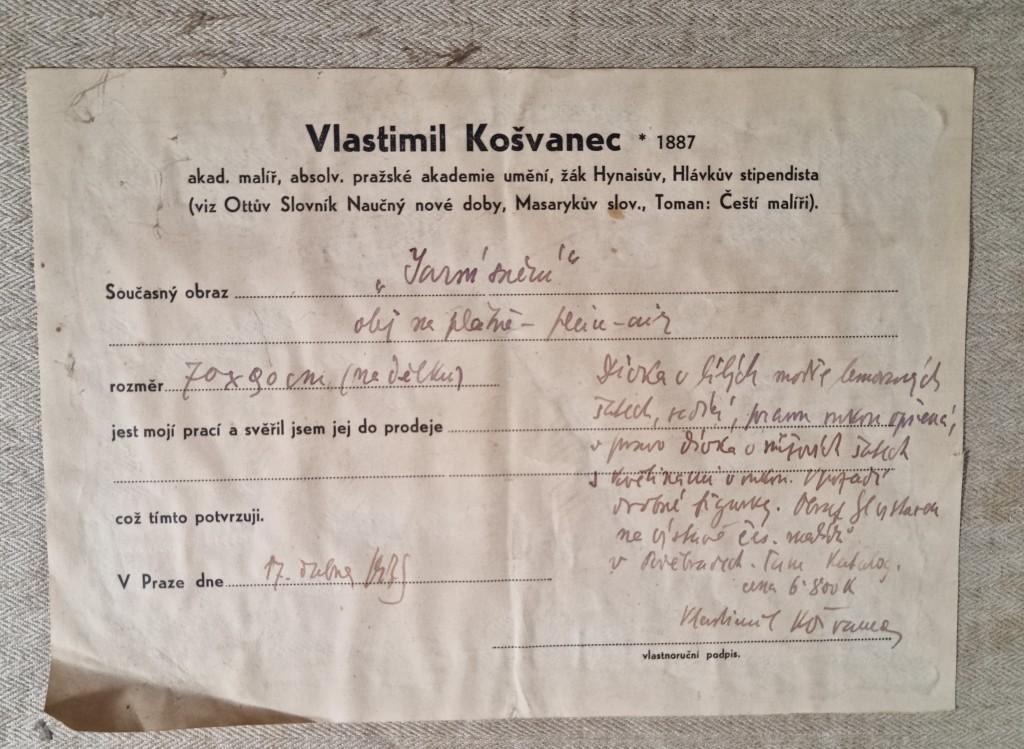 Vlastimil Košvanec * 1887
akad. malíř, absolv. pražské akademie umění, žák Hynaisův, Hlávkův stipendista
(viz Ottův Slovník Naučný nové doby, Masarykův slov., Toman: Čeští malíři).
Současný obraz „Jarní snění“
olej na plátně - plein-air
rozměr 70x90 cm (na délku)
jest mojí prací a svěřil jsem jej do prodeje
což tímto potvrzuji.
V Praze dne 17. dubna
Dívka v bílých modře lemovaných
šatech, sedící, pravou rukou opřená,
v pravo dívka v růžových šatech
s květinami v rukou. V pozadí
drobné figurky. Obraz byl vystaven
na výstavě čes. malířů
v Poděbradech. Katalog.
cena 6.800 K
Vlastimil Košvanec
vlastnoruční podpis.